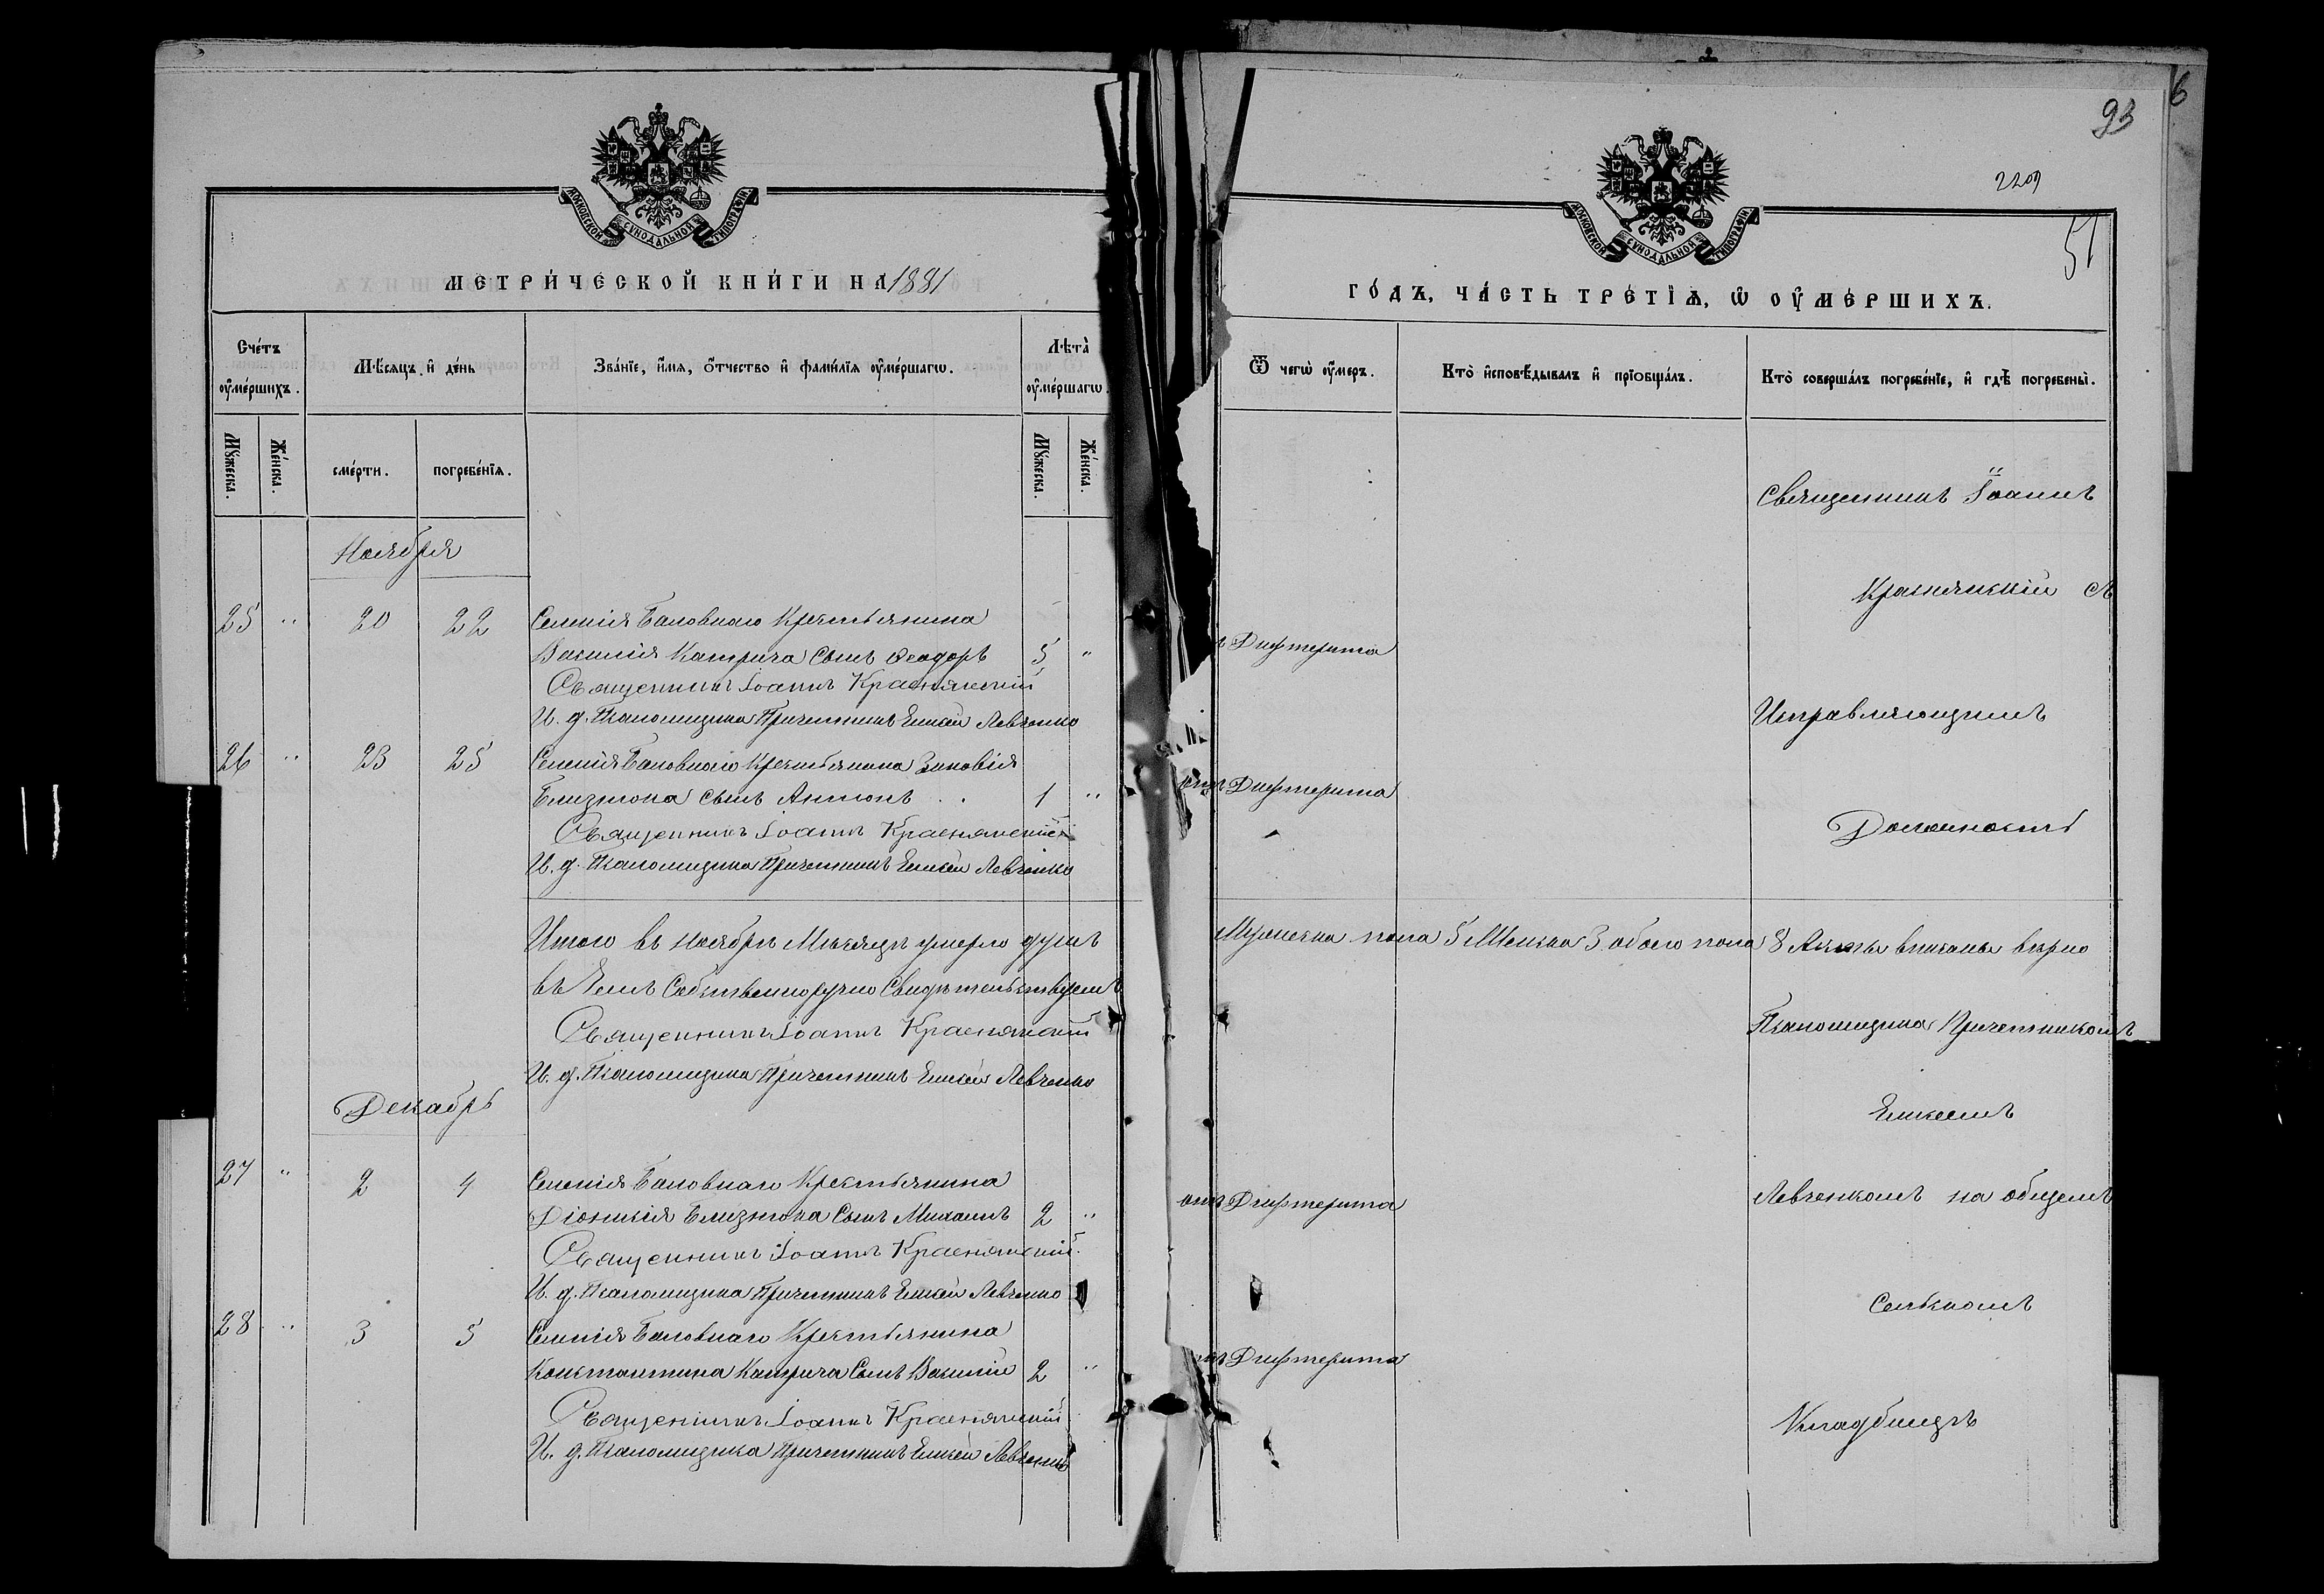 МОСКОВСКОЙ СУНОДАЛЬНОЙ ТИПОГРАФІИ
МЕТРИЧЕСКОЙ КНИГИ НА 1881
Счетъ оумершихъ.
Мѣсяцъ и день
Званіе, имя, отчество и фамилія оумершагѡ.
Лѣта оумершагѡ.
Мужеска.
Женска.
смерти.
погребенія.
Мужеска.
Женска.
Ноября
25 " 20 22 Селенія Баловнаго Крестьянина
Василія Катрича Сынъ Ѳеодоръ 5 "
Священникъ Іоаннъ Краснянскій
И. д. Псаломщика Причетникъ Елисей Левченко
26 " 23 25 Селенія Баловнаго Крестьянина Зиновія
Близнюка сынъ Антонъ . . 1 "
Священникъ Іоаннъ Краснянскій
И. д. Псаломщика Причетникъ Елисей Левченко
Итого въ Ноябрѣ Мѣсяцѣ умерло душъ
въ чемъ Собственноручно Свидѣтельствуемъ
Священникъ Іоаннъ Краснянскій
И. д. Псаломщика Причетникъ Елисей Левченко
Декабрь
27 " 2 4 Селенія Баловнаго Крестьянина
Діонисія Близнюка Сынъ Михаилъ 2 "
Священникъ Іоаннъ Краснянскій.
И. д. Псаломщика Причетникъ Елисей Левченко
28 " 3 5 Селенія Баловнаго Крестьянина
Константина Катрича Сынъ Василій 2 "
Священникъ Іоаннъ Краснянскій
И. д. Псаломщика Причетникъ Елисей Левченко
6
93
2209
51
МОСКОВСКОЙ СУНОДАЛЬНОЙ ТИПОГРАФІИ
ГОДЪ, ЧАСТЬ ТРЕТІЯ, Ѡ ОУМЕРШИХЪ.
Ѿ чегѡ оумеръ.
Кто исповѣдывалъ и пріобщалъ.
Кто совершалъ погребеніе, и гдѣ погребены.
Священникъ Іоаннъ
Краснянскій
Дифтерита
Исправляющимъ
отъ Дифтерита
Должность
Мужеска пола 5 Женска 3 обоего пола 8 Акты вписаны вѣрно
Псаломщика Причетникомъ
Елисеемъ
отъ Дифтерита
Левченкомъ на общемъ
Сельскомъ
Дифтерита
Кладбищѣ